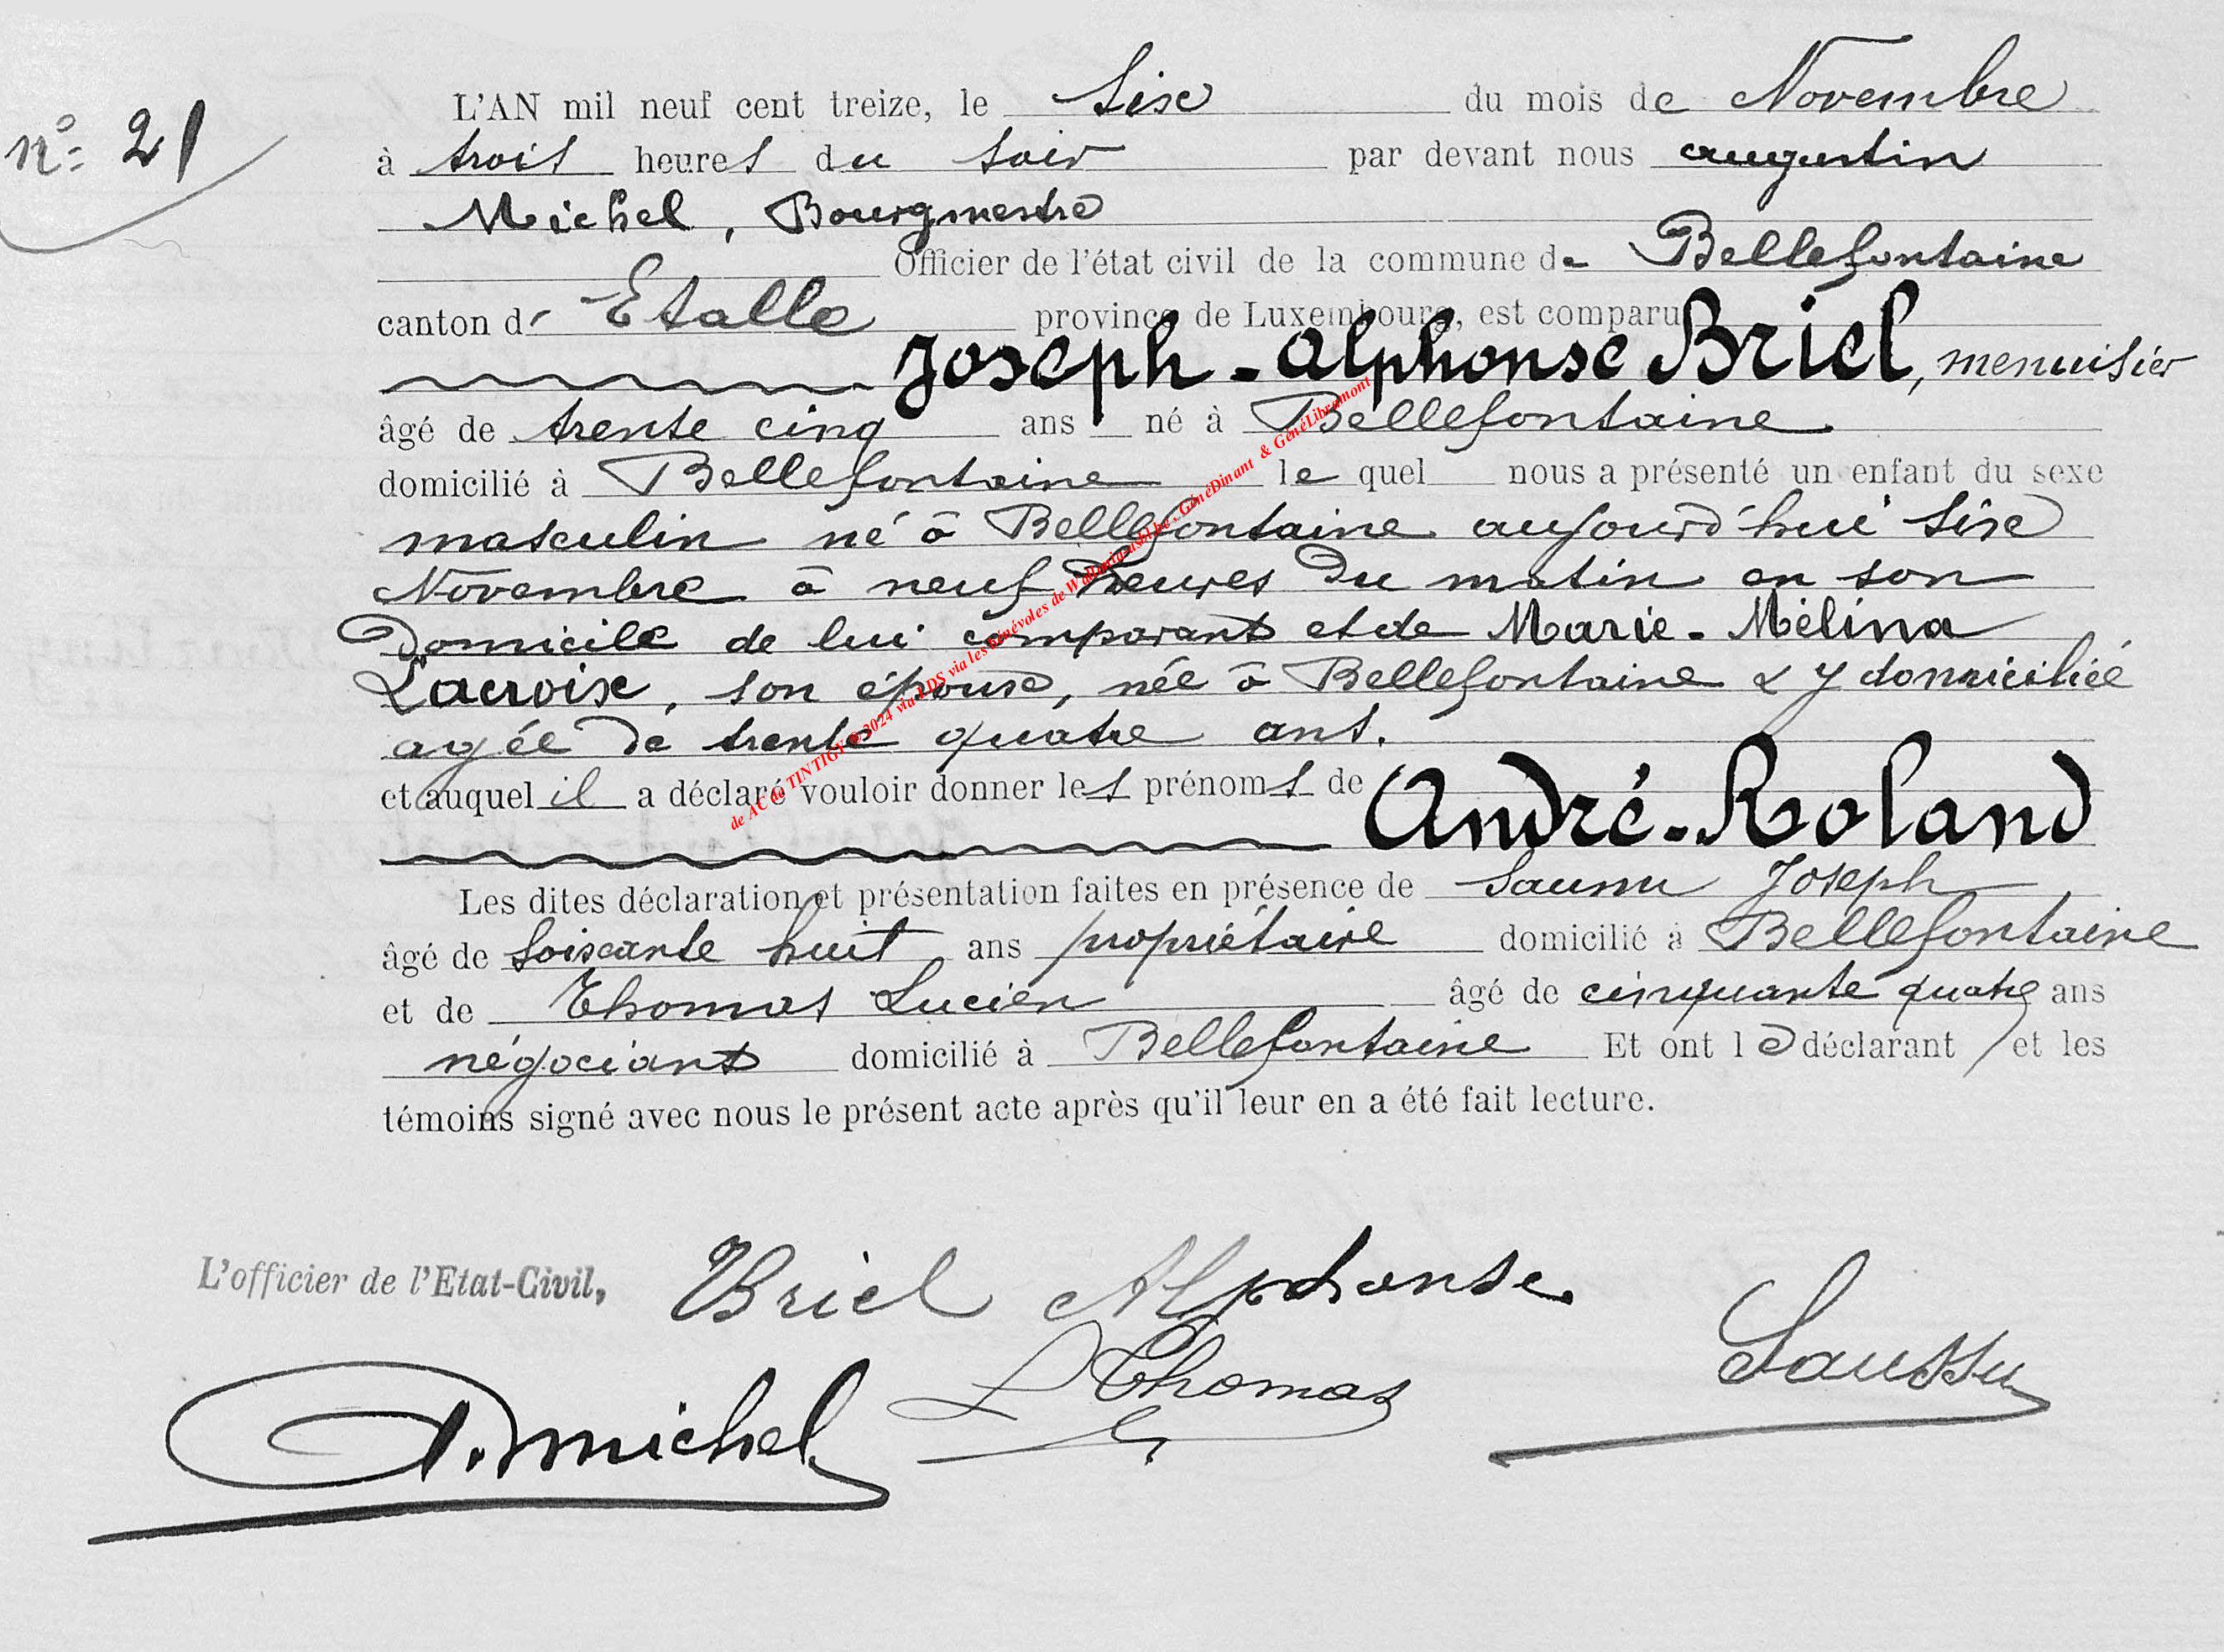 n° 21
L'AN mil neuf cent treize, le six du mois de Novembre
à trois heures du soir par devant nous augustin
Michel, Bourgmestre
Officier de l'état civil de la commune de Bellefontaine
canton d' Etalle province de Luxembourg, est comparu
Joseph-Alphonse Briel, menuisier
âgé de trente cinq ans né à Bellefontaine
domicilié à Bellefontaine le quel nous a présenté un enfant du sexe
masculin né à Bellefontaine aujourd'hui six
Novembre à neuf heures du matin en son
domicile de lui comparant et de Marie-Mélina
Lacroix, son épouse, née à Bellefontaine & y domiciliée
agée de trente quatre ans.
et auquel il a déclaré vouloir donner les prénoms de
André-Roland
Les dites déclaration et présentation faites en présence de Saussu Joseph
âgé de soixante huit ans propriétaire domicilié à Bellefontaine
et de Thomas Lucien âgé de cinquante quatre ans
négociant domicilié à Bellefontaine Et ont le déclarant et les
témoins signé avec nous le présent acte après qu'il leur en a été fait lecture.
L'officier de l'Etat-Civil, Briel Alphonse
L Thomas Saussu
A. Michel
de AC de TINTIGY © 2024 via LDS via les bénévoles de GénéDinant & GénéLibramont